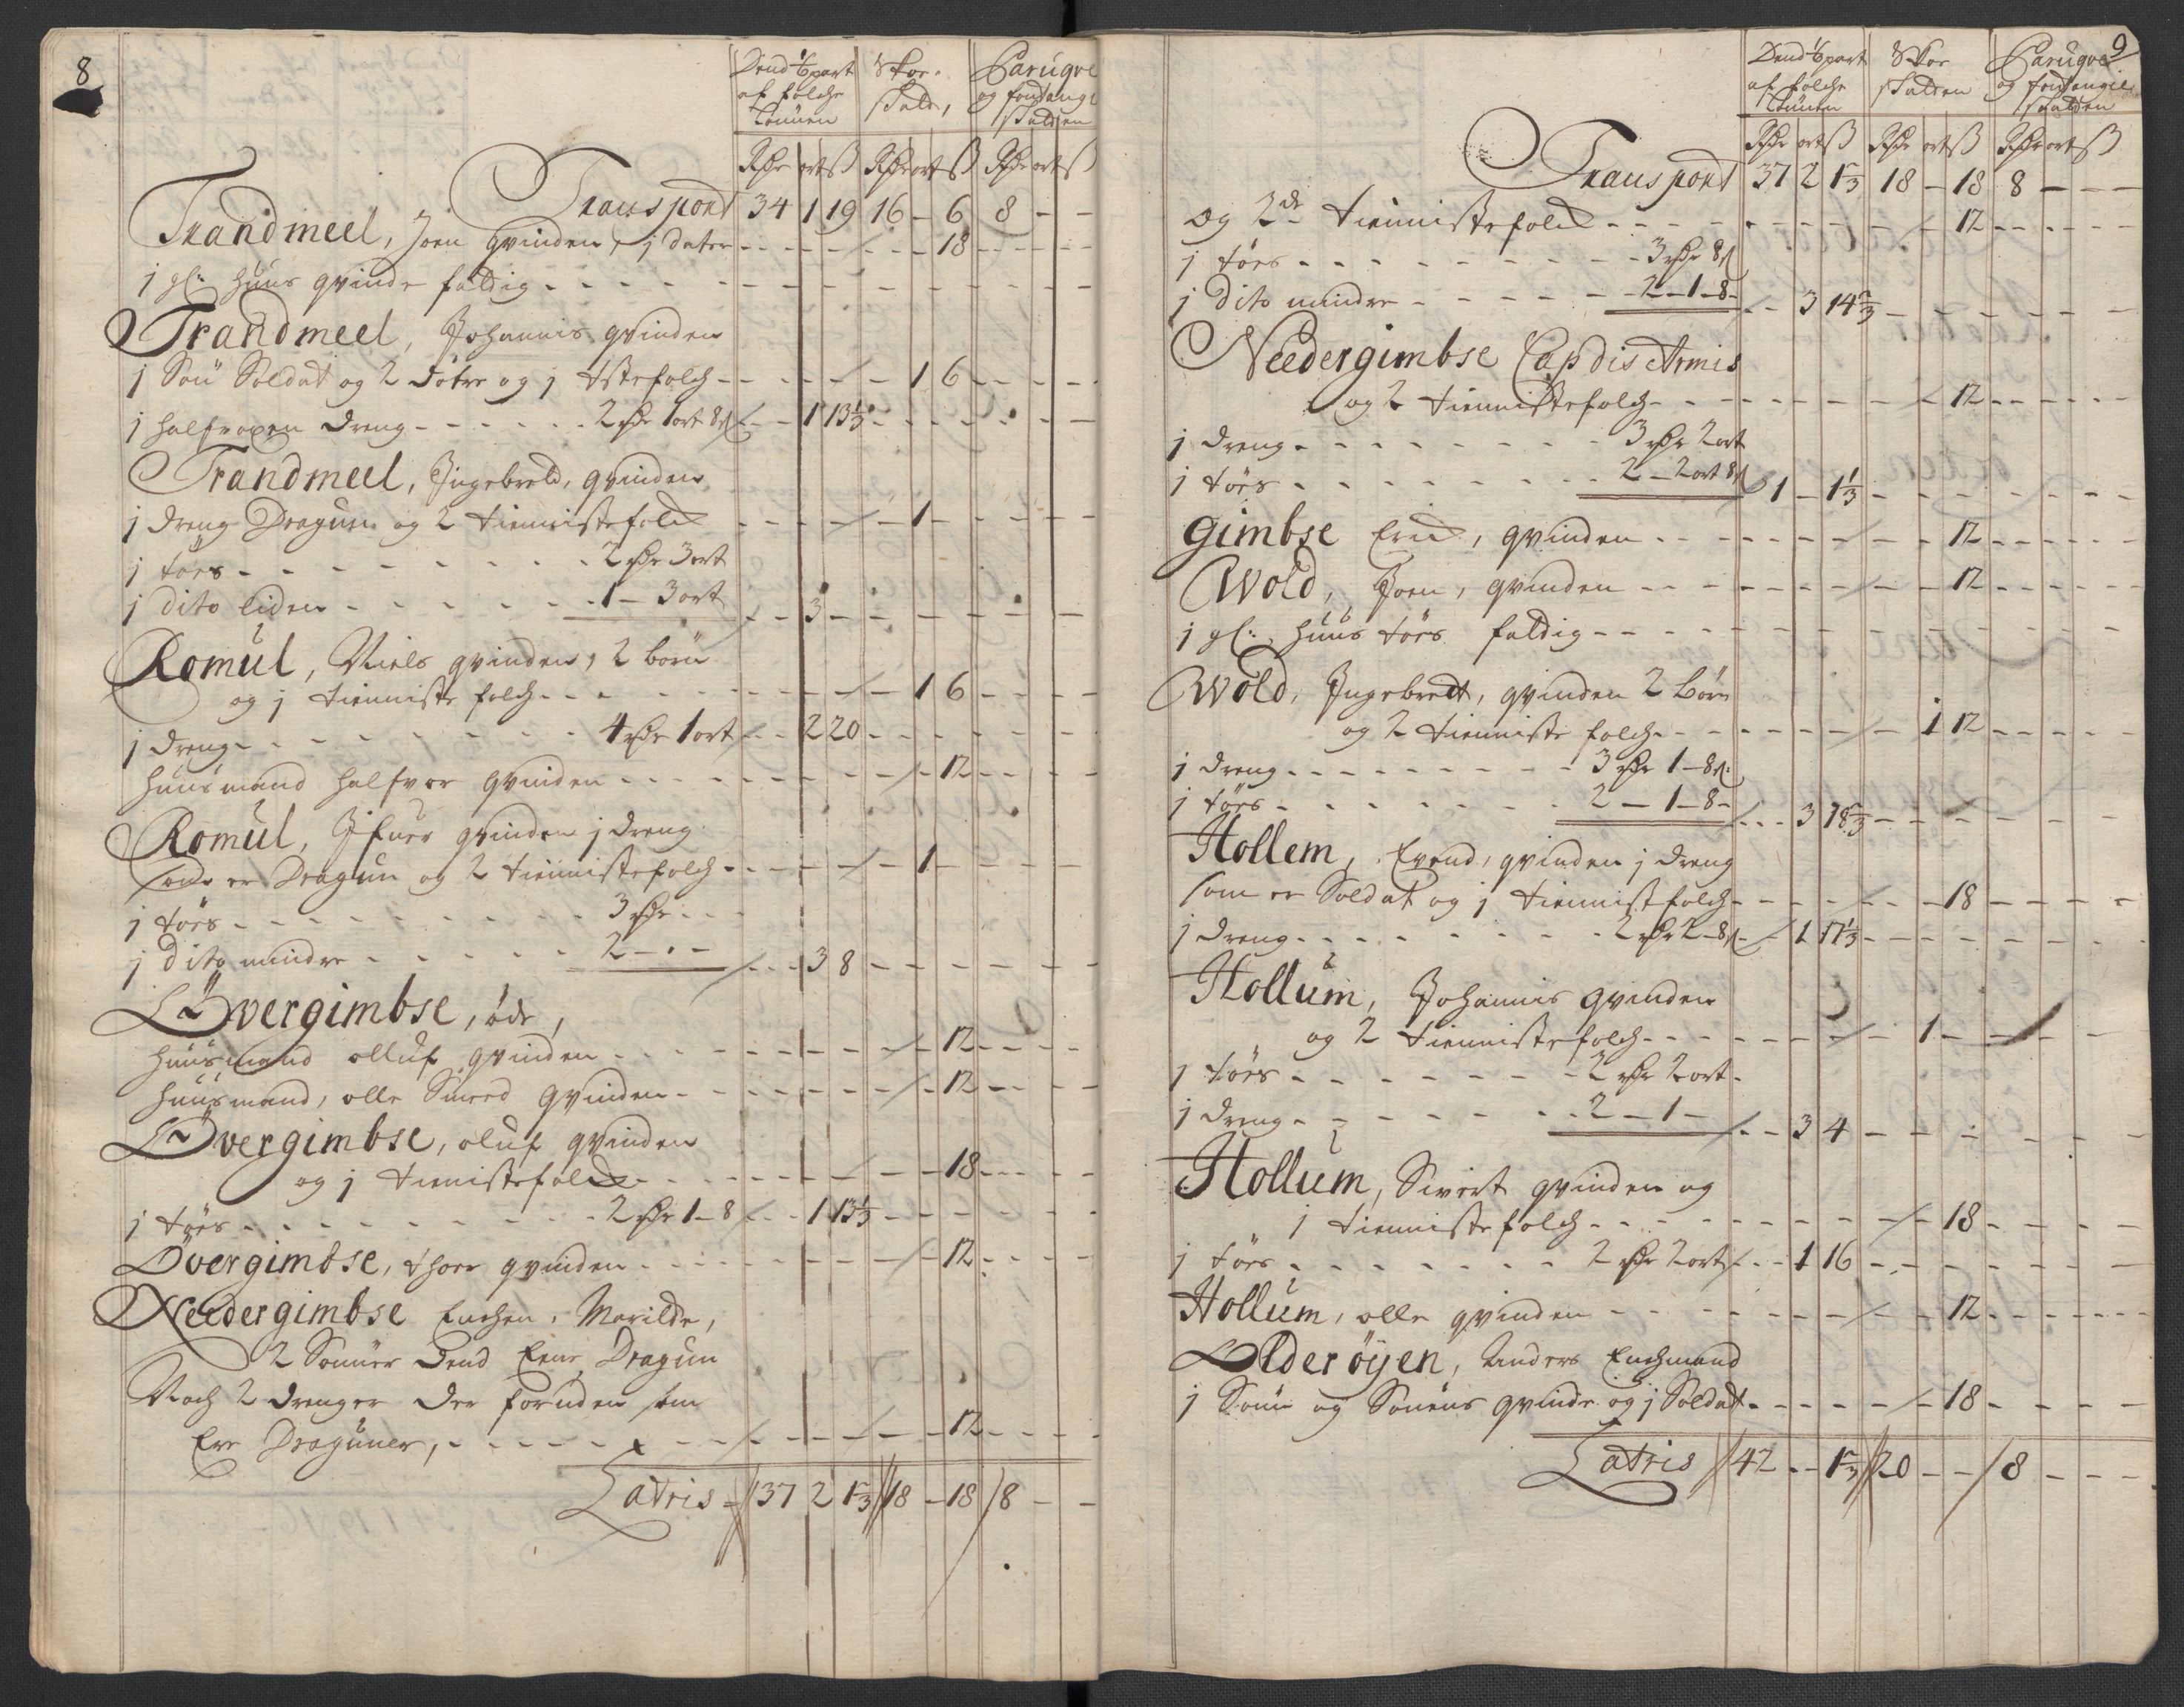 8
Dend 1/6 part af folche Lönnen | Skoe Skatt, | Paruqve og fontange Skatten
Rdr ort ß | Rdr ort ß | Rdr ort ß
Transport 34 1 19 16 - 6 8 - -
Trandmeel, Joen qvinden, 1 dater - - - - 18 - - -
1 gl: huus qvinde fattig - - - -
Trandmeel, Johannis qvinden
1 Sön Soldat og 2 döttre og 1 tstefolch - - - 1 6 - - -
1 halfvoxen dreng - - - 2 Rdr 1 ort 8 ß - 1 13 1/3 - - -
Trandmeel, Ingebreld, qvinden
1 dreng Dragun og 2 tiennistefolch - - - 1 - - -
1 töes - - - 2 Rdr 3 ort
1 dito liden - - - 1 - 3 ort - 3 - - -
Romul, Niels qvinden, 2 börn
og 1 tienniste folch - - - 1 6 - - -
1 dreng - - - 4 Rdr 1 ort - 2 20 - - -
huusmand halfvor qvinden - - - 12 - - -
Romul, Ifuer qvinden 1 dreng
som er Dragun og 2 tiennistefolch - - - 1 - - -
1 töes - - - 3 Rdr - -
1 dito mindre - - - 2 - - - 3 8 - - -
Övergimbse, öde,
huusmand olluf qvinden - - - 12 - - -
huusmand, olle Smed qvinden - - - 12 - - -
Övergimbse, oluf qvinden
og 1 tienistefolch - - - 18 - - -
1 töes - - - 2 Rdr 1 - 8 - 1 13 1/3 - - -
Övergimbse, thore qvinden - - - 12 - - -
Needergimbse Enchen, Marilde,
2 Sönner Dend Eene Dragun
Noch 2 drenger der foruden som
Ere Draguner, - - - 12 - - -
Latris 37 2 1 2/3 18 - 18 8 - -
9
Dend 1/6 part af folche Lönnen | Skoe Skatten | Paruqve og fontangie Skatten
Rdr ort ß | Rdr ort ß | Rdr ort ß
Transport 37 2 1 2/3 18 - 18 8 - - -
og 2de tiennistefolch - - - 12 - - -
1 töes - - - 3 Rdr 8 ß
1 dito mindre - - - 2 - 1 - 8 - 3 14 2/3 - - -
Needergimbse Cap dis Armis
og 2 tiennistefolch - - - 12 - - -
1 dreng - - - 3 Rdr 2 ort
1 töes - - - 2 - 2 ort 8 ß 1 - 1 1/3 - - -
Gimbse Erich, qvinden - - - 12 - - -
Wold, Joen, qvinden - - - 12 - - -
1 gl: huus töes fattig - - -
Wold, Ingebrett, qvinden 2 börn
og 2 tienniste folch - - - 1 12 - - -
1 dreng - - - 3 Rdr 1 - 8 ß
1 töes - - - 2 - 1 - 8 - 3 18 2/3 - - -
Hollem, Evend, qvinden 1 dreng
som er Soldat og 1 tiennist folch - - - 18 - - -
1 dreng - - - 2 Rdr 2 - 8 ß - 1 17 1/3 - - -
Hollum, Johannis qvinden
og 2 tiennistefolch - - - 1 - - -
1 töes - - - 2 Rdr 2 ort -
1 dreng - - - 2 - 1 - - 3 4 - - -
Hollum, Sivert qvinden og
1 tienniste folch - - - 18 - - -
1 töes - - - 2 Rdr 2 ort - 1 16 - - -
Hollum, olle qvinden - - - 12 - - -
Olderöyen, Anders Enchmand
1 Sönn og Sönens qvinde og 1 Soldat - - - 18 - - -
Latris 42 - 1 2/3 20 - - 8 - - -